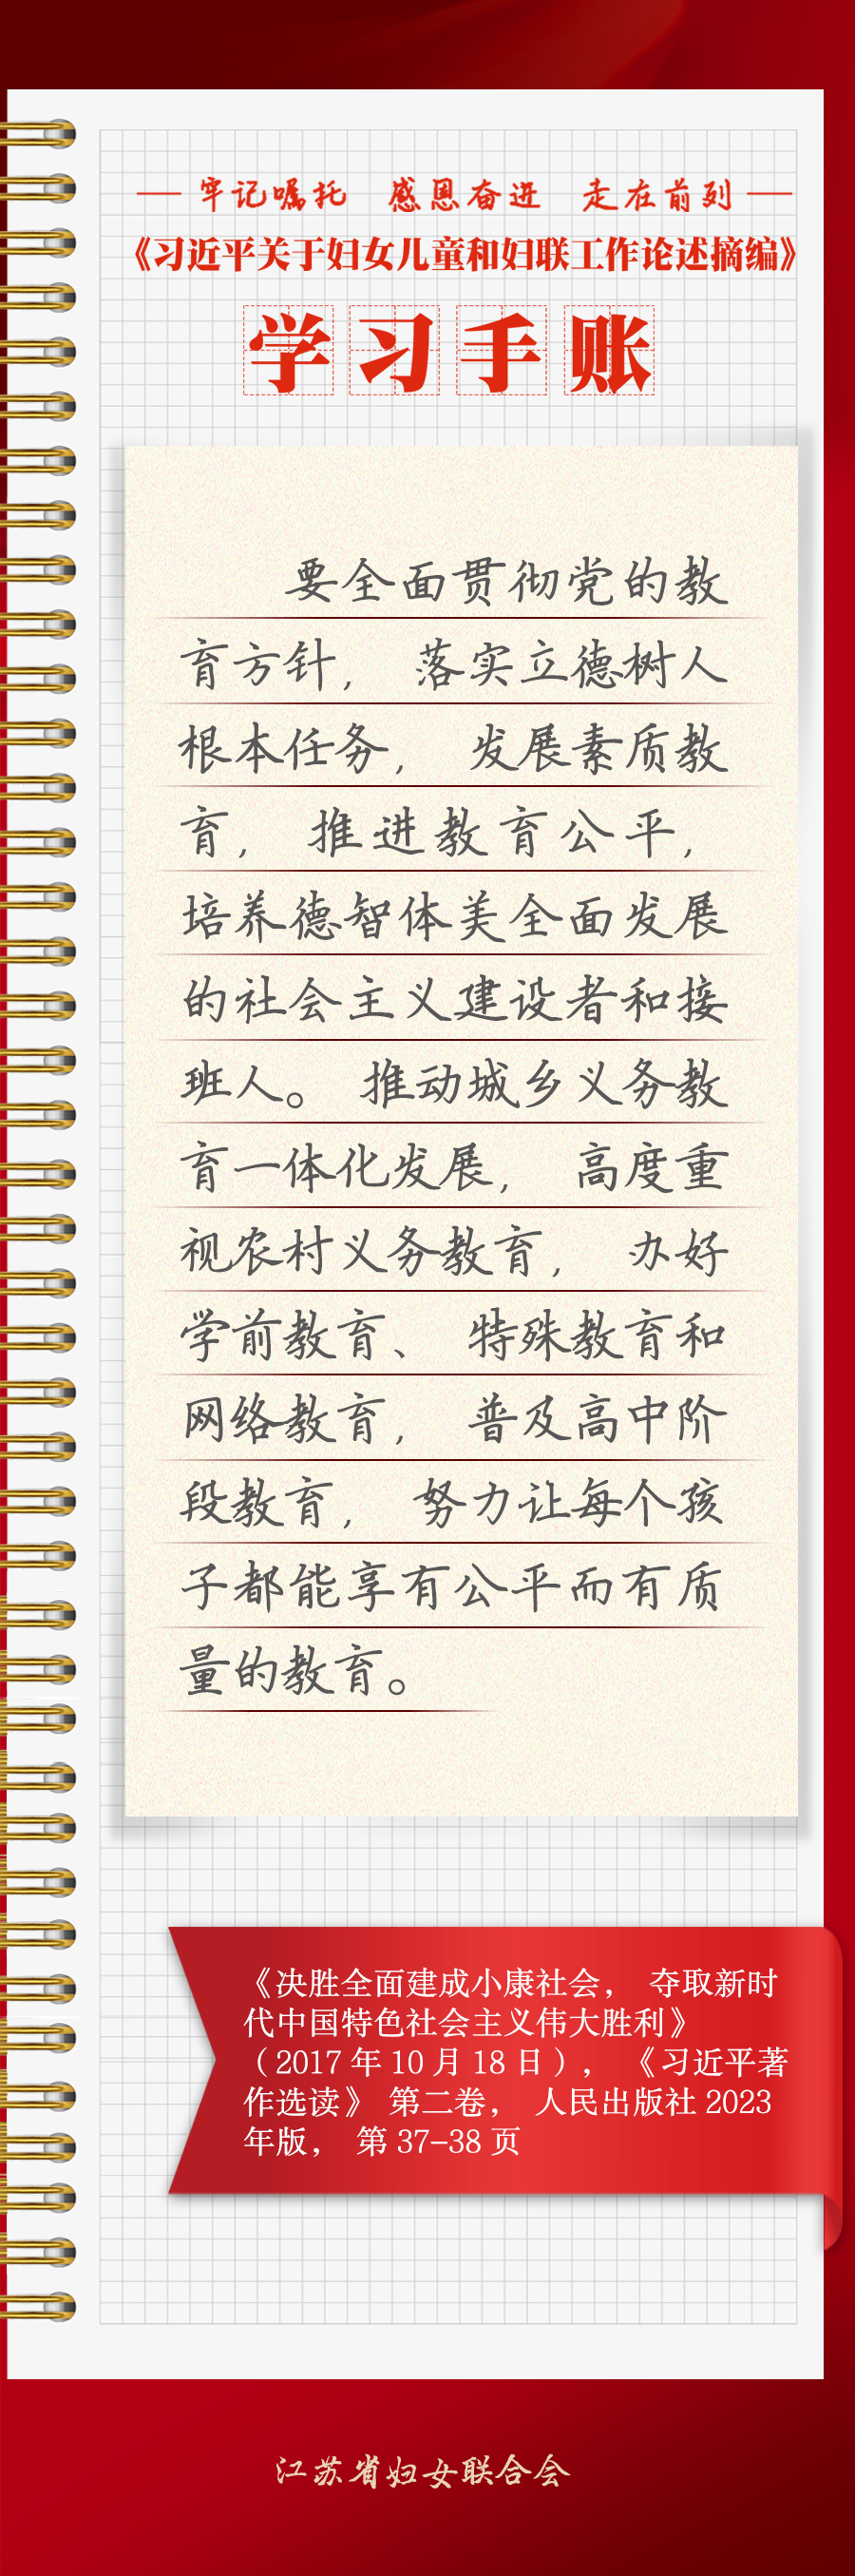 牢记嘱托 感恩奋进 走在前列
《习近平关于妇女儿童和妇联工作论述摘编》
学习手账
要全面贯彻党的教
育方针，落实立德树人
根本任务，发展素质教
育，推进教育公平，
培养德智体美全面发展
的社会主义建设者和接
班人。推动城乡义务教
育一体化发展，高度重
视农村义务教育，办好
学前教育、特殊教育和
网络教育，普及高中阶
段教育，努力让每个孩
子都能享有公平而有质
量的教育。
《决胜全面建成小康社会，夺取新时
代中国特色社会主义伟大胜利》
（2017 年 10 月 18 日），《习近平著
作选读》 第二卷，人民出版社 2023
年版，第 37–38 页
江苏省妇女联合会